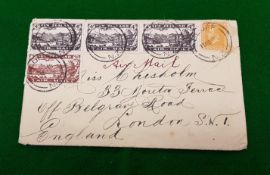 Air Mail
Miss Chisholm
33 Moreton Terrace
Off Belgrave Road
London S.W.1.
England